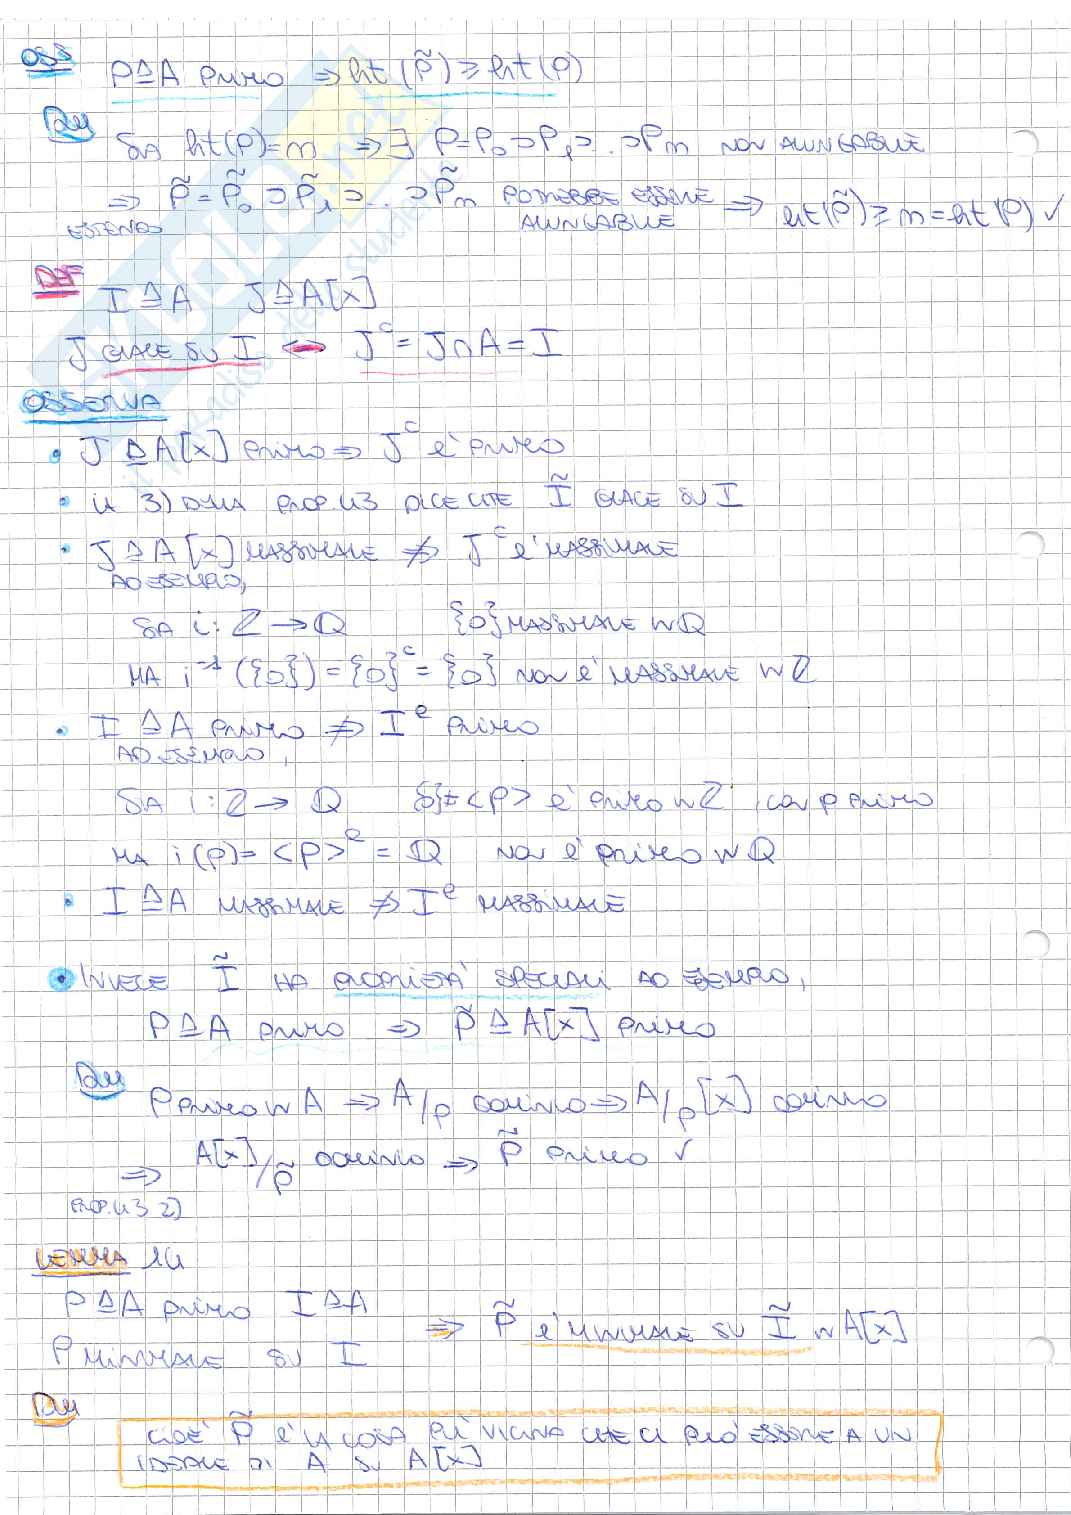 OSS P ⊴ A primo ⇒ ht(P̃) ≥ ht(P)
Dim
SIA ht(P)=m ⇒ ∃ P=P₀⊃P₁⊃...⊃Pm NON ALLUNGABILE
⇒ P̃=P̃₀⊃P̃₁⊃...⊃P̃m POTREBBE ESSERE ALLUNGABILE ⇒ ht(P̃) ≥ m = ht(P) ✓
ESTENDO
DEF
I ⊴ A J ⊴ A[x]
J GIACE SU I ⇔ Jᶜ = J∩A = I
OSSERVA
• J ⊴ A[x] primo ⇒ Jᶜ è primo
• il 3) DELLA PROP.43 DICE CHE Ĩ GIACE SU I
• J ⊴ A[x] MASSIMALE ⇏ Jᶜ è MASSIMALE
AD ESEMPIO,
SIA i: ℤ → ℚ {0} MASSIMALE IN ℚ
MA i⁻¹({0}) = {0}ᶜ = {0} NON È MASSIMALE IN ℤ
• I ⊴ A primo ⇏ Iᵉ primo
AD ESEMPIO,
SIA i: ℤ → ℚ {0}≠<P> è primo IN ℤ, con p primo
MA i(p) = <P>ᵉ = ℚ NON È primo IN ℚ
• I ⊴ A MASSIMALE ⇏ Iᵉ MASSIMALE
• INVECE Ĩ HA PROPRIETÀ SPECIALI AD ESEMPIO,
P ⊴ A primo ⇒ P̃ ⊴ A[x] primo
Dim
P primo IN A ⇒ A/P dominio ⇒ A/P[x] dominio
⇒ A[x]/P̃ dominio ⇒ P̃ primo ✓
PROP.43 2)
LEMMA 44
P ⊴ A primo I ⊴ A
⇒ P̃ è MINIMALE SU Ĩ IN A[x]
P MINIMALE SU I
Dim
CIOÈ P̃ È LA COSA PIÙ VICINA CHE CI PUÒ ESSERE A UN
IDEALE DI A SU A[x]